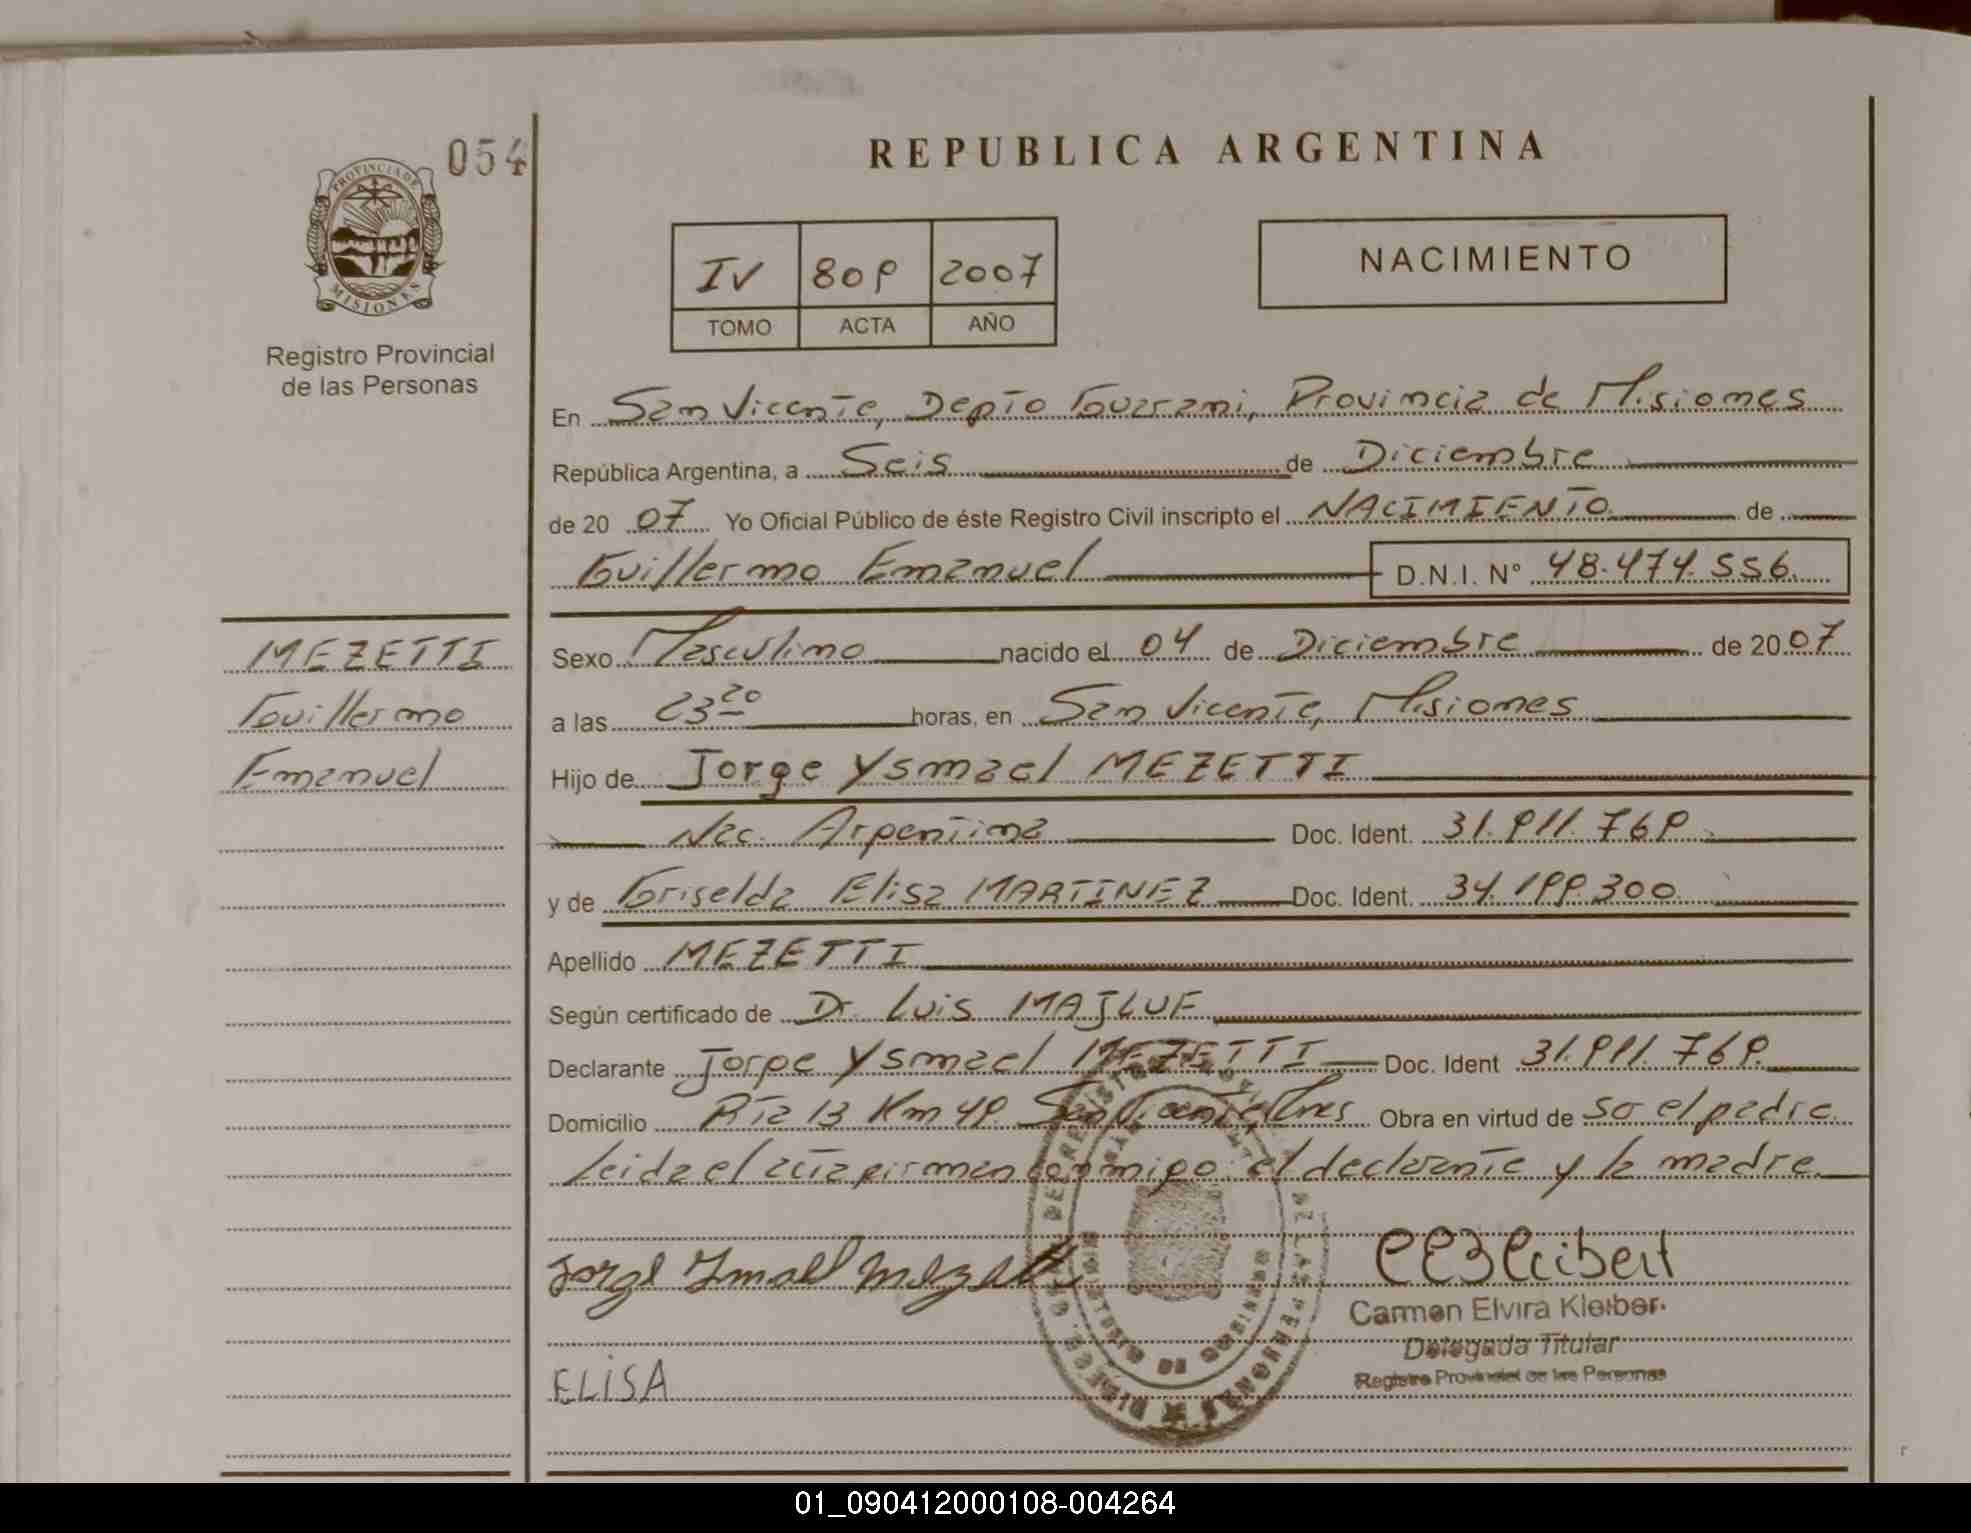 054
PROVINCIA DE
MISIONES
Registro Provincial
de las Personas
REPUBLICA ARGENTINA
IV 809 2007
TOMO ACTA AÑO
NACIMIENTO
En San Vicente, Depto Guarani, Provincia de Misiones
República Argentina, a Seis de Diciembre
de 20 07 Yo Oficial Público de éste Registro Civil inscripto el NACIMIENTO de
Guillermo Emanuel D.N.I. N° 48.474.556.
MEZETTI
Guillermo
Emanuel
Sexo Masculino nacido el 04 de Diciembre de 20 07
a las 23 20 horas, en San Vicente, Misiones
Hijo de Jorge Ysmael MEZETTI
Nac. Argentina Doc. Ident. 31.911.769
y de Griselda Elisa MARTINEZ Doc. Ident. 34.199.300
Apellido MEZETTI
Según certificado de Dr. Luis MAJLUF
Declarante Jorge Ysmael MEZETTI Doc. Ident 31.911.769.
Domicilio Rta 13 Km 49 San Vicente, Mnes Obra en virtud de so el padre
Leida el acta firman conmigo el declarante y la madre
Jorge Ismael Mezetti
Carmen Elvira Kleiber
Delegada Titular
Registro Provincial de las Personas
ELISA
01_090412000108-004264